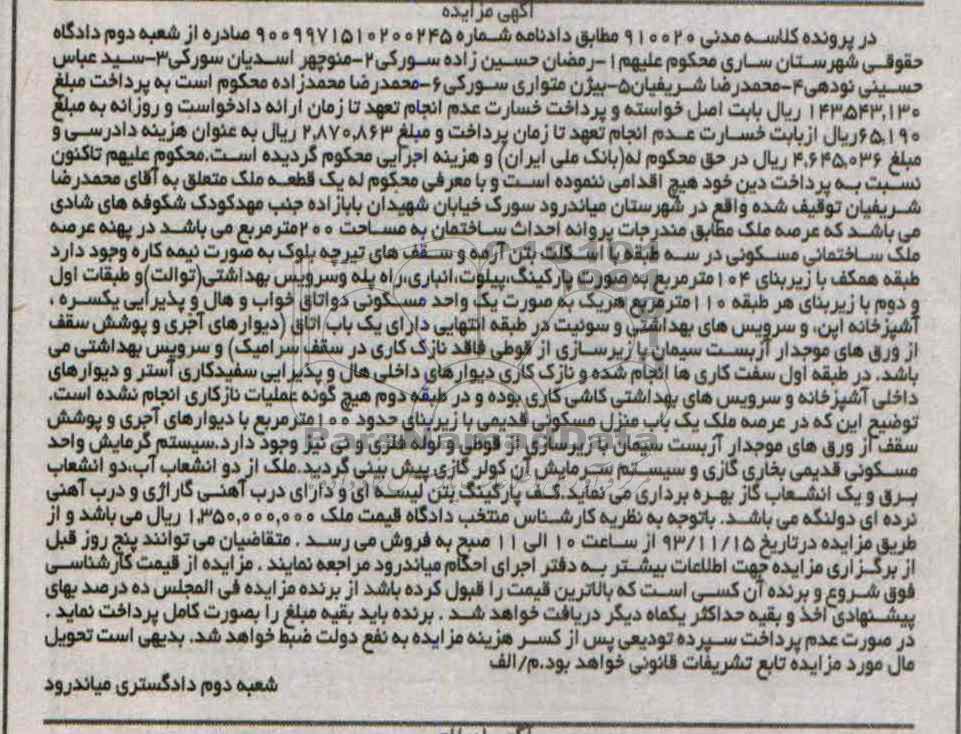 آگهی مزایده
در پرونده کلاسه مدنی ۹۱۰۰۲۰ مطابق دادنامه شماره ۹۰۰۹۹۷۱۵۱۰۲۰۰۲۴۵ صادره از شعبه دوم دادگاه
حقوقی شهرستان ساری محکوم علیهم ۱-رمضان حسین زاده سورکی۲-منوچهر اسدیان سورکی۳-سید عباس
حسینی نودهی۴-محمدرضا شریفیان۵-بیژن متواری سورکی۶-محمدرضا محمدزاده محکوم است به پرداخت مبلغ
۱۴۳,۵۴۳,۱۳۰ ریال بابت اصل خواسته و پرداخت خسارت عدم انجام تعهد تا زمان ارائه دادخواست و روزانه به مبلغ
۶۵,۱۹۰ریال ازبابت خسارت عدم انجام تعهد تا زمان پرداخت و مبلغ ۲,۸۷۰,۸۶۳ ریال به عنوان هزینه دادرسی و
مبلغ ۴,۶۴۵,۰۳۶ ریال در حق محکوم له(بانک ملی ایران) و هزینه اجرایی محکوم گردیده است.محکوم علیهم تاکنون
نسبت به پرداخت دین خود هیچ اقدامی ننموده است و با معرفی محکوم له یک قطعه ملک متعلق به آقای محمدرضا
شریفیان توقیف شده واقع در شهرستان میاندرود سورک خیابان شهیدان بابازاده جنب مهدکودک شکوفه های شادی
می باشد که عرصه ملک مطابق مندرجات پروانه احداث ساختمان به مساحت ۲۰۰مترمربع می باشد در پهنه عرصه
ملک ساختمانی مسکونی در سه طبقه با اسکلت بتن آرمه و سقف های تیرچه بلوک به صورت نیمه کاره وجود دارد
طبقه همکف با زیربنای ۱۰۴مترمربع به صورت پارکینگ،پیلوت،انباری،راه پله وسرویس بهداشتی(توالت)و طبقات اول
و دوم با زیربنای هر طبقه ۱۱۰مترمربع هریک به صورت یک واحد مسکونی دواتاق خواب و هال و پذیرایی یکسره ،
آشپزخانه اپن، و سرویس های بهداشتی و سوئیت در طبقه انتهایی دارای یک باب اتاق (دیوارهای آجری و پوشش سقف
از ورق های موجدار آزبست سیمان با زیرسازی از قوطی فاقد نازک کاری در سقف سرامیک) و سرویس بهداشتی می
باشد. در طبقه اول سفت کاری ها انجام شده و نازک کاری دیوارهای داخلی هال و پذیرایی سفیدکاری آستر و دیوارهای
داخلی آشپزخانه و سرویس های بهداشتی کاشی کاری بوده و در طبقه دوم هیچ گونه عملیات نازکاری انجام نشده است.
توضیح این که در عرصه ملک یک باب منزل مسکونی قدیمی با زیربنای حدود ۱۰۰مترمربع با دیوارهای آجری و پوشش
سقف از ورق های موجدار آزبست سیمان با زیرسازی از قوطی و لوله فلزی و نی نیز وجود دارد.سیستم گرمایش واحد
مسکونی قدیمی بخاری گازی و سیستم سرمایش آن کولر گازی پیش بینی گردید.ملک از دو انشعاب آب،دو انشعاب
برق و یک انشعاب گاز بهره برداری می نماید.کف پارکینگ بتن لیسه ای و دارای درب آهنی گاراژی و درب آهنی
نرده ای دولنگه می باشد. باتوجه به نظریه کارشناس منتخب دادگاه قیمت ملک ۱,۳۵۰,۰۰۰,۰۰۰ ریال می باشد و از
طریق مزایده درتاریخ ۹۳/۱۱/۱۵ از ساعت ۱۰ الی ۱۱ صبح به فروش می رسد . متقاضیان می توانند پنج روز قبل
از برگزاری مزایده جهت اطلاعات بیشتر به دفتر اجرای احکام میاندرود مراجعه نمایند . مزایده از قیمت کارشناسی
فوق شروع و برنده آن کسی است که بالاترین قیمت را قبول کرده باشد از برنده مزایده فی المجلس ده درصد بهای
پیشنهادی اخذ و بقیه حداکثر یکماه دیگر دریافت خواهد شد . برنده باید بقیه مبلغ را بصورت کامل پرداخت نماید .
در صورت عدم پرداخت سپرده تودیعی پس از کسر هزینه مزایده به نفع دولت ضبط خواهد شد. بدیهی است تحویل
مال مورد مزایده تابع تشریفات قانونی خواهد بود.م/الف
شعبه دوم دادگستری میاندرود